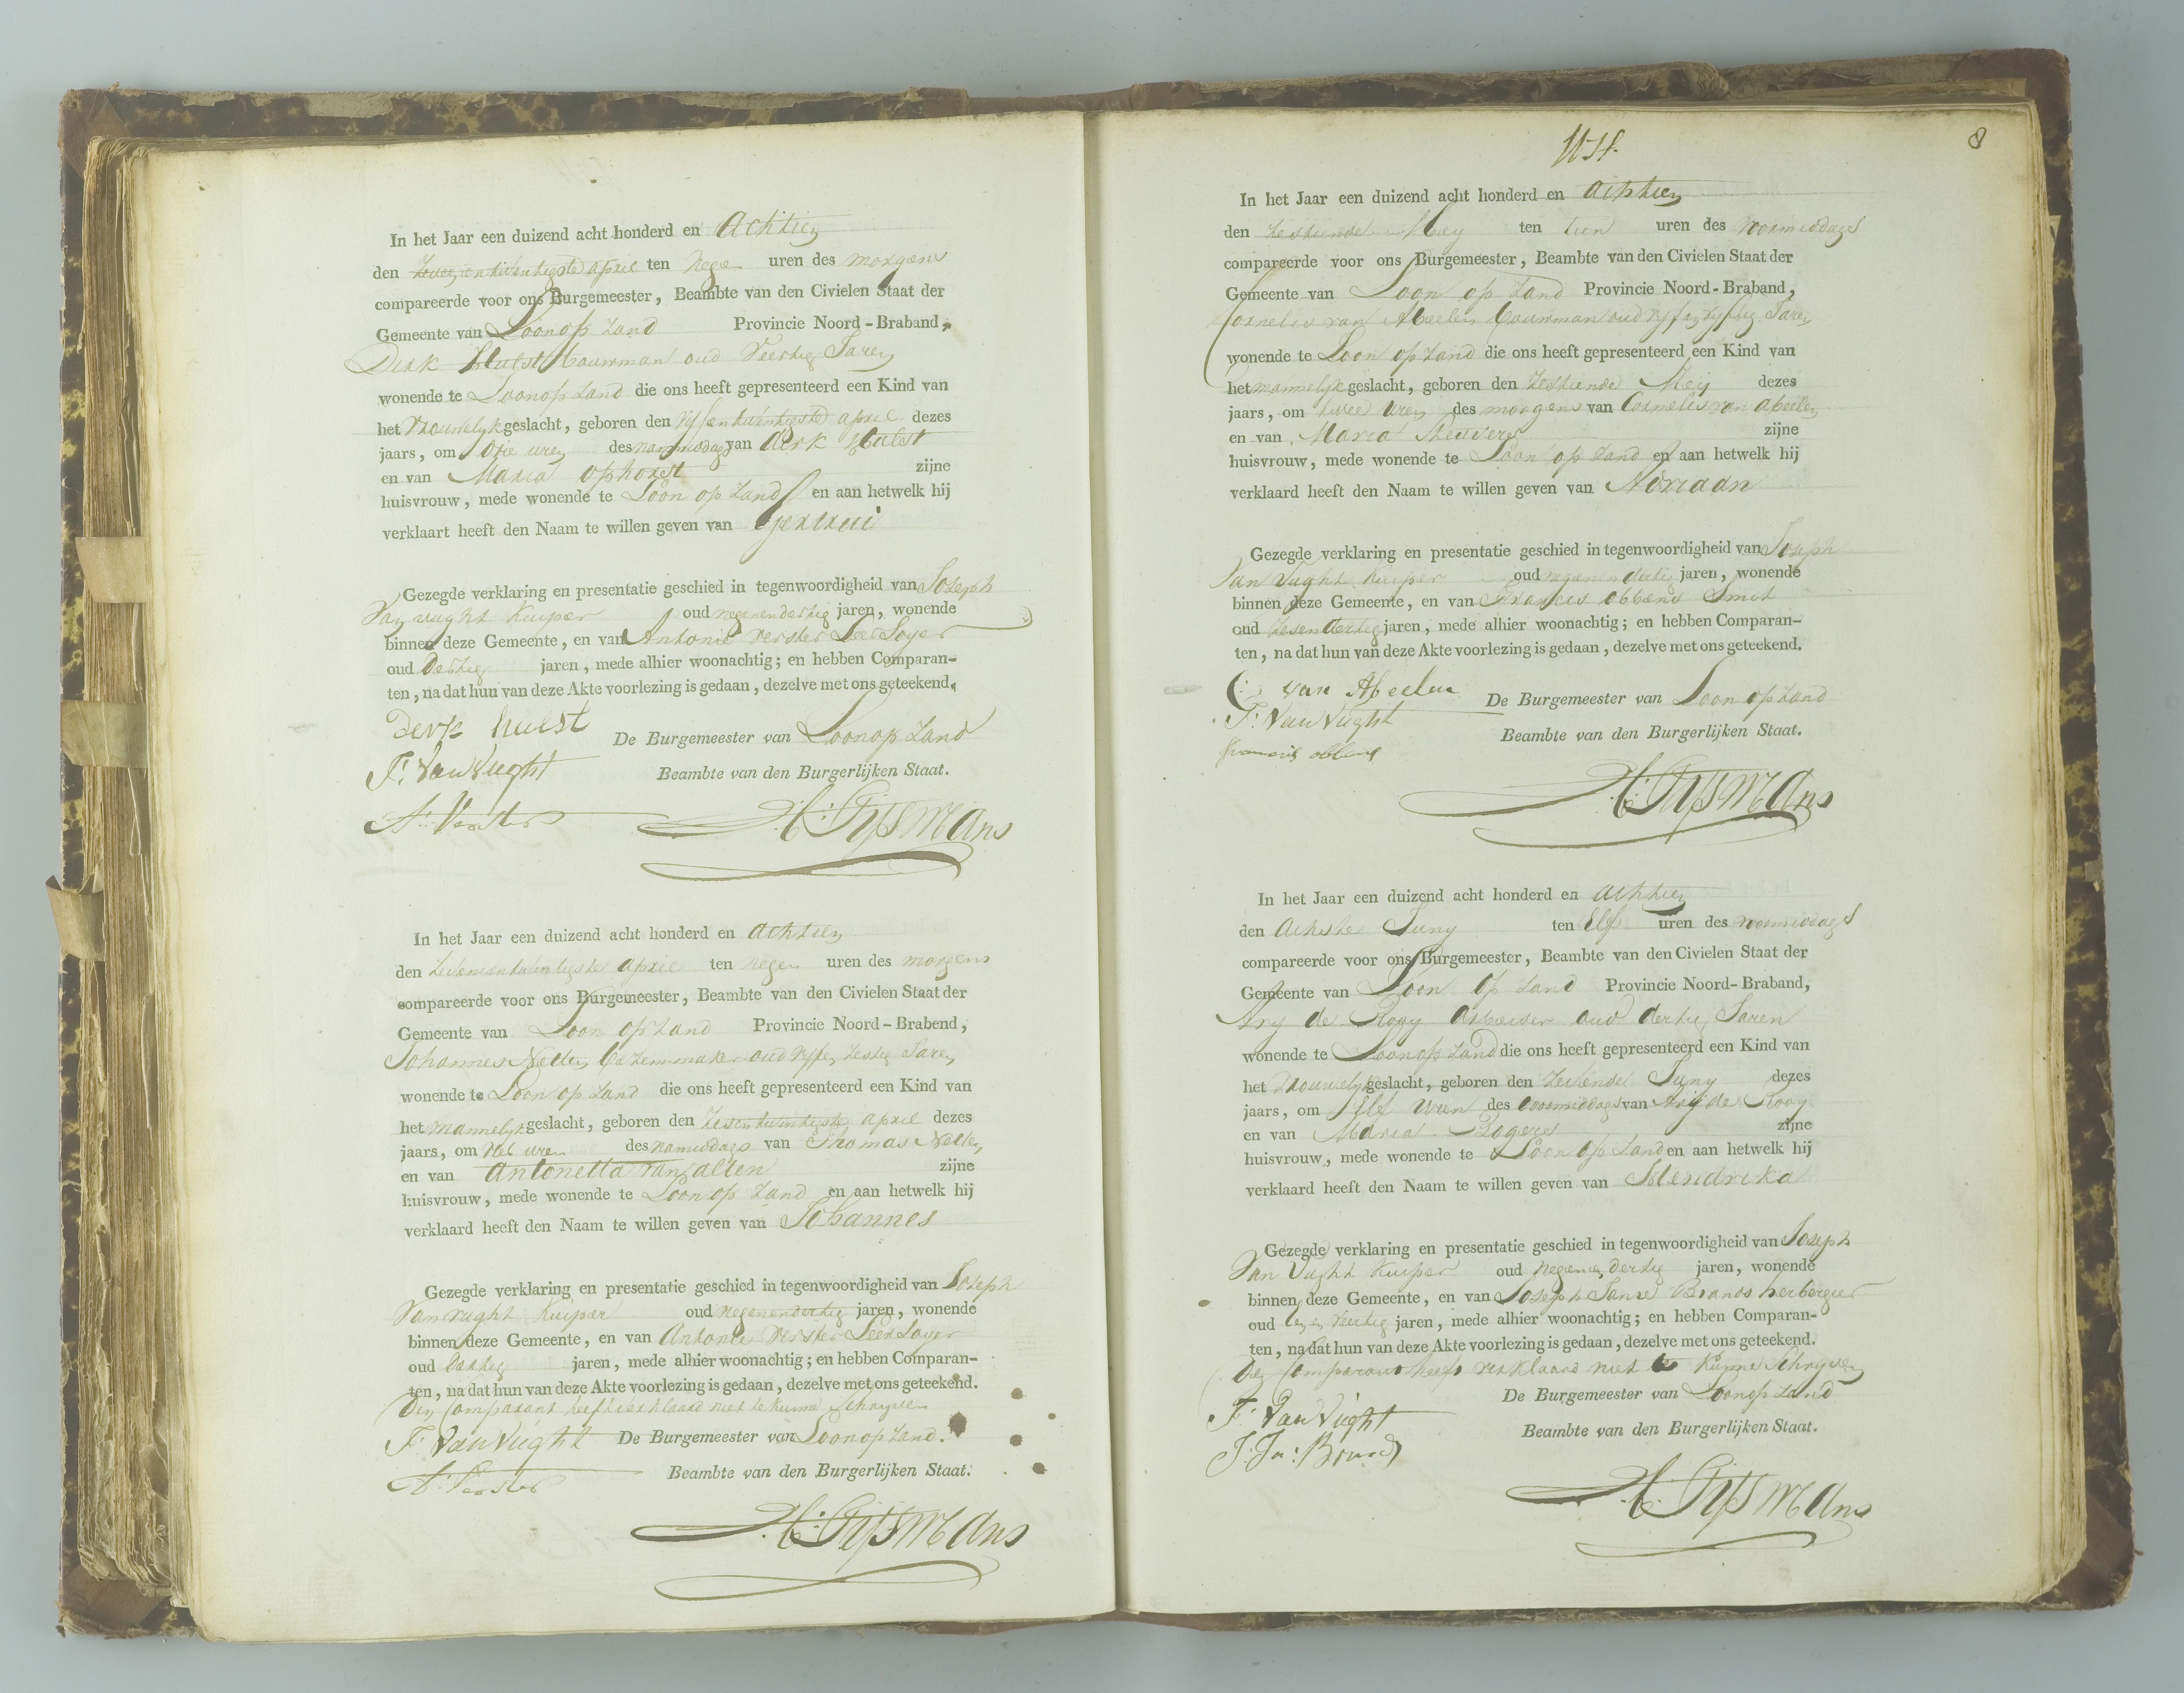 In het Jaar een duizend acht honderd en Achtien
den Zevenentwintigste april ten Nege uren des morgens
compareerde voor ons Burgemeester, Beambte van den Civielen Staat der
Gemeente van Loon op Zand Provincie Noord-Braband,
Dirk Hulst bouwman oud Veertig Jaren
wonende te Loon op Zand die ons heeft gepresenteerd een Kind van
het Vrouwelyk geslacht, geboren den Vyfentwintigste april dezes
jaars, om Drie uren des nammiddags van Dirk Hulst
en van Maria ophorst zijne
huisvrouw, mede wonende te Loon op Zand en aan hetwelk hij
verklaart heeft den Naam te willen geven van Gertrui
Gezegde verklaring en presentatie geschied in tegenwoordigheid van Joseph
Van vught Kuiper oud negenendertig jaren, wonende
binnen deze Gemeente, en van Antonie verster Leerloyer
oud Dertig jaren, mede alhier woonachtig; en hebben Comparan-
ten, na dat hun van deze Akte voorlezing is gedaan, dezelve met ons geteekend.
Derk hulst
De Burgemeester van Loon op Zand
J: Van Vught
Beambte van den Burgerlijken Staat.
A: Verster
H: Gijsmans
In het Jaar een duizend acht honderd en Achtien
den Zevenentwintigste april ten negen uren des morgens
compareerde voor ons Burgemeester, Beambte van den Civielen Staat der
Gemeente van Loon op Zand Provincie Noord-Brabend,
Johannes Nelten bezemmaker oud vyfen Zestig Jaren
wonende te Loon op Zand die ons heeft gepresenteerd een Kind van
het mannelyk geslacht, geboren den Zesentwintigste april dezes
jaars, om uren des namiddags van Thomas Nelten
en van Antonetta van alten zijne
huisvrouw, mede wonende te Loon op Zand en aan hetwelk hij
verklaard heeft den Naam te willen geven van Johannes
Gezegde verklaring en presentatie geschied in tegenwoordigheid van Joseph
Van vught Kuiper oud negenendertig jaren, wonende
binnen deze Gemeente, en van Antonie Verster Leerloyer
oud Dertig jaren, mede alhier woonachtig; en hebben Comparan-
ten, na dat hun van deze Akte voorlezing is gedaan, dezelve met ons geteekend.
Den Comparant heeft verklaard niet te kunne Schryven
J: Van Vught De Burgemeester van Loon op Zand.
A: Verster Beambte van den Burgerlijken Staat.
H: Gijsmans
8
In het Jaar een duizend acht honderd en Achtien
den Zestiende Mey ten tien uren des voormiddags
compareerde voor ons Burgemeester, Beambte van den Civielen Staat der
Gemeente van Loon op Zand Provincie Noord-Braband,
Cornelis van Abeelen bouwman oud vyfenvyftig Jaren
wonende te Loon op Zand die ons heeft gepresenteerd een Kind van
het mannelyk geslacht, geboren den Zestiende Mey dezes
jaars, om twee uren des morgens van Cornelis van Abeelen
en van Maria zijne
huisvrouw, mede wonende te Loon op Zand en aan hetwelk hij
verklaard heeft den Naam te willen geven van Adriaan
Gezegde verklaring en presentatie geschied in tegenwoordigheid van Joseph
Van Vught Kuiper oud negenendertig jaren, wonende
binnen deze Gemeente, en van Francis obbens Smit
oud Zesendertig jaren, mede alhier woonachtig; en hebben Comparan-
ten, na dat hun van deze Akte voorlezing is gedaan, dezelve met ons geteekend.
C: van Abeelen De Burgemeester van Loon op Zand
J: Van Vught
Beambte van den Burgerlijken Staat.
francis obbens
H: Gijsmans
In het Jaar een duizend acht honderd en Achtien
den Achtste Juny ten Elf uren des voormiddags
compareerde voor ons Burgemeester, Beambte van den Civielen Staat der
Gemeente van Loon op Zand Provincie Noord-Braband,
Ary de Rooy Arbeider oud dertig Jaren
wonende te Loon op Zand die ons heeft gepresenteerd een Kind van
het Vrouwelyk geslacht, geboren den Zevende Juny dezes
jaars, om Elf uren des voormiddags van Ary de Rooy
en van Maria Rogers zijne
huisvrouw, mede wonende te Loon op Zand en aan hetwelk hij
verklaard heeft den Naam te willen geven van Hendrika
Gezegde verklaring en presentatie geschied in tegenwoordigheid van Joseph
Van Vught Kuiper oud negenendertig jaren, wonende
binnen deze Gemeente, en van Joseph Janse Brands herbergier
oud veertig jaren, mede alhier woonachtig; en hebben Comparan-
ten, na dat hun van deze Akte voorlezing is gedaan, dezelve met ons geteekend.
Den Comparant heeft verklaard niet te kunne Schryven
De Burgemeester van Loon op Zand
J: Van Vught
Beambte van den Burgerlijken Staat.
J: Jn: Brands
H: Gijsmans